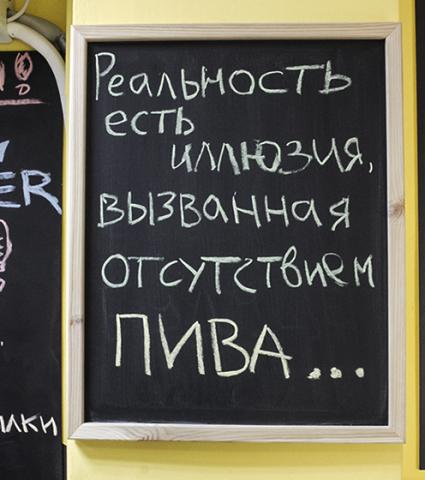 Реальность
есть
иллюзия,
вызванная
отсутствием
ПИВА...